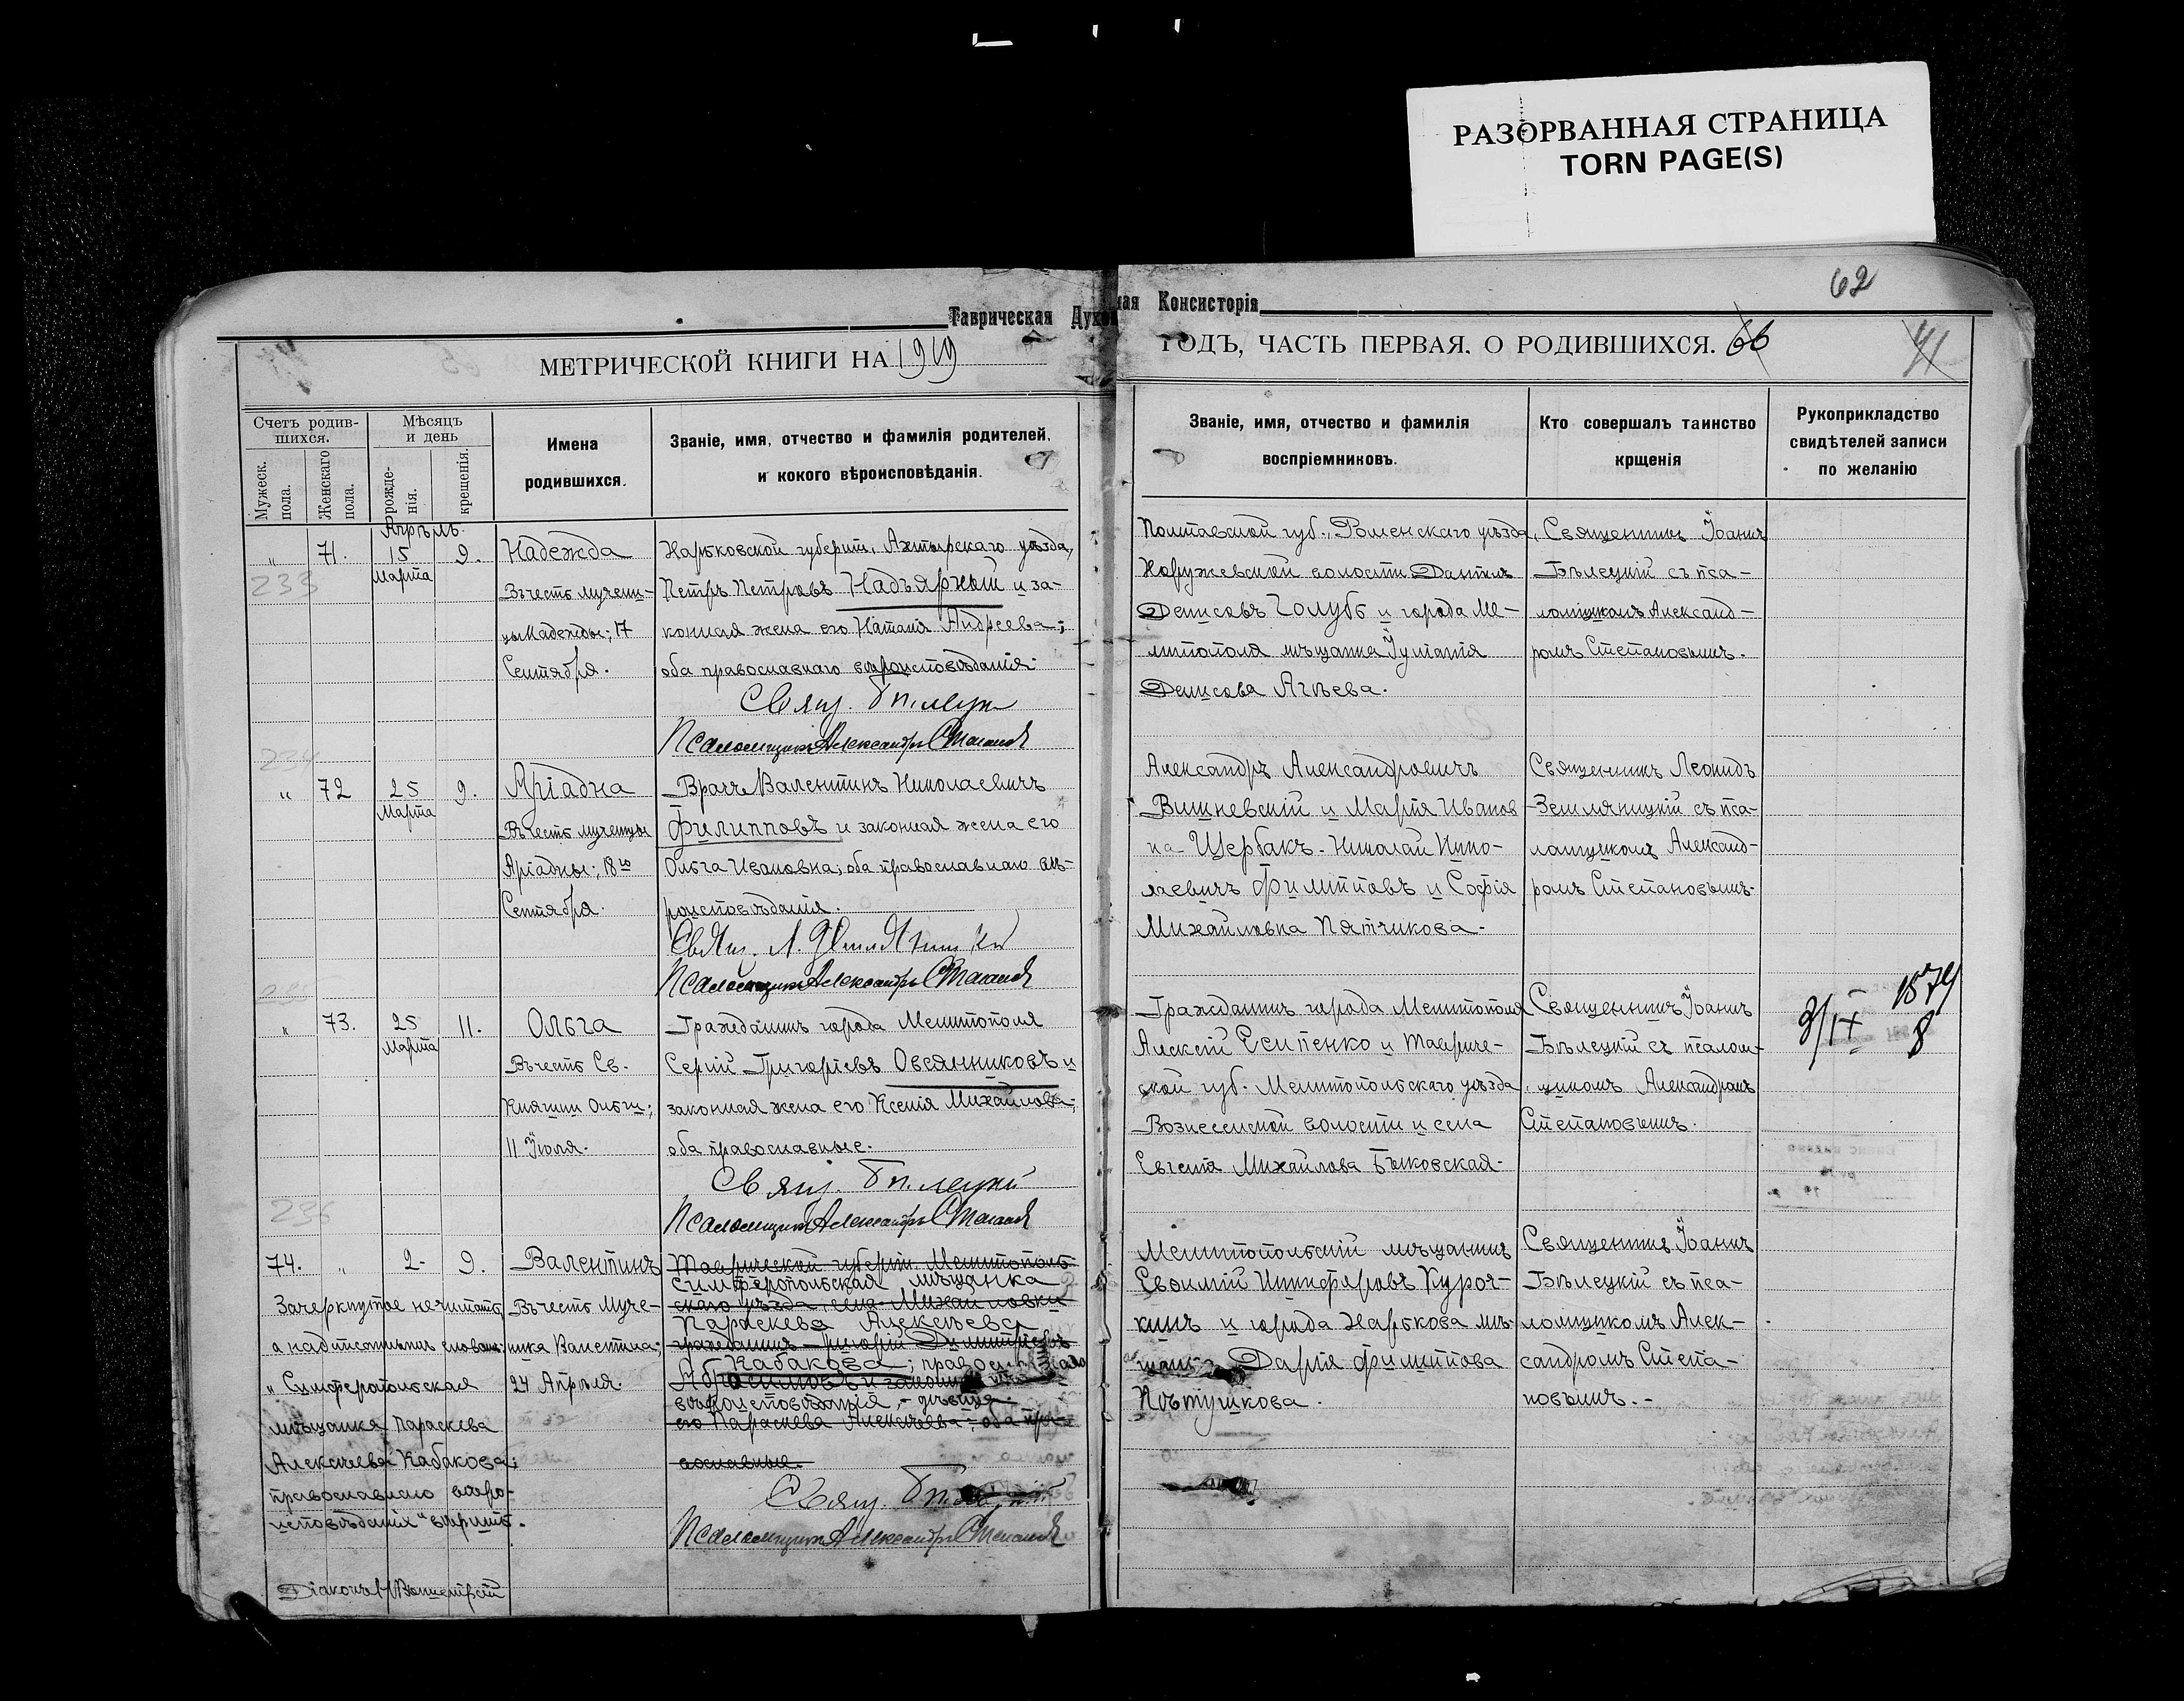 РАЗОРВАННАЯ СТРАНИЦА
TORN PAGE(S)
62
Таврическая Духовная Консисторія
МЕТРИЧЕСКОЙ КНИГИ НА 1919
ГОДЪ, ЧАСТЬ ПЕРВАЯ. О РОДИВШИХСЯ. 66
41
Счетъ родив-
шихся.
Мужеск.
пола.
Женскаго
пола.
Мѣсяцъ
и день
рожде-
нія.
крещенія.
Имена
родившихся.
Званіе, имя, отчество и фамилія родителей,
и кокого вѣроисповѣданія.
Званіе, имя, отчество и фамилія
воспріемниковъ.
Кто совершалъ таинство
крщенія
Рукоприкладство
свидѣтелей записи
по желанію
Апрѣль.
„ 71. 15 9.
Марта
233
Надежда
Въ честь мучени-
цы Надежды; 17
Сентября.
Харьковской губерніи, Ахтырскаго уѣзда,
Петръ Петровъ Надъярный и за-
конная жена его Наталія Андреева;
оба православнаго вѣроисповѣданія.
Свящ. Бѣлецкій
Псаломщикъ Александръ Степановъ
Полтавской губ., Роменскаго уѣзда,
Хоружевской волости Даніилъ
Денисовъ Голубъ и города Ме-
литополя мѣщанка Іуліанія
Денисова Агѣева.
Священникъ Іоаннъ
Бѣлецкій съ пса-
ломщикомъ Александ-
ромъ Степановымъ.
234
„ 72 25 9.
Марта
Аріадна
Въ честь мученицы
Аріадны; 18го
Сентября.
Врачъ Валентинъ Николаевичъ
Филипповъ и законная жена его
Ольга Ивановна; оба православнаго вѣ-
роисповѣданія.
Свящ. Л. Земляницкій
Псаломщикъ Александръ Степановъ
Александръ Александровичъ
Вишневскій и Марія Иванов-
на Щербакъ. Николай Нико-
лаевичъ Филипповъ и Софія
Михайловна Пятчикова.
Священникъ Леонидъ
Земляницкій съ пса-
ломщикомъ Александ-
ромъ Степановымъ.
235
„ 73. 25 11.
Марта
Ольга
Въ честь Св.
Княгини Ольги;
11 Іюля.
Гражданинъ города Мелитополя
Сергій Григоріевъ Овсянниковъ и
законная жена его Ксенія Михайлова;
оба православные.
Свящ. Бѣлецкій
Псаломщикъ Александръ Степановъ
Гражданинъ города Мелитополя
Алексій Есипенко и Тавриче-
ской губ. Мелитопольскаго уѣзда,
Вознесенской волости и села
Евгенія Михайлова Быковская.
Священникъ Іоаннъ
Бѣлецкій съ псалом-
щикомъ Александромъ
Степановымъ.
3/IX 1874
8
236
74. „ 2. 9.
Валентинъ
Въ честь муче-
ника Валентина;
24 Апрѣля.
Таврической губерніи, Мелитополь-
Симферопольская мѣщанка
скаго уѣзда, села Михайловки
Параскева Алексѣева
гражданинъ Григорій Димитріевъ
Кабакова; православнаго
вѣроисповѣданія, дѣвица
его Параскева Алексѣева; оба пра-
вославные.
Свящ.
Псаломщикъ Александръ Степановъ
Мелитопольскій мѣщанинъ
Евѳимій Никифоровъ Куроч-
кинъ и города Харькова мѣ-
Дарія Филиппова
Пѣтушкова.
Священникъ Іоаннъ
Бѣлецкій съ пса-
ломщикомъ Алек-
сандромъ Степа-
новымъ.-
Зачеркнутое не читать,
а надписаннымъ словамъ:
„Симферопольская
мѣщанка Параскева
Алексѣева Кабакова;
православнаго вѣро-
исповѣданія“ вѣрить.
Діаконъ